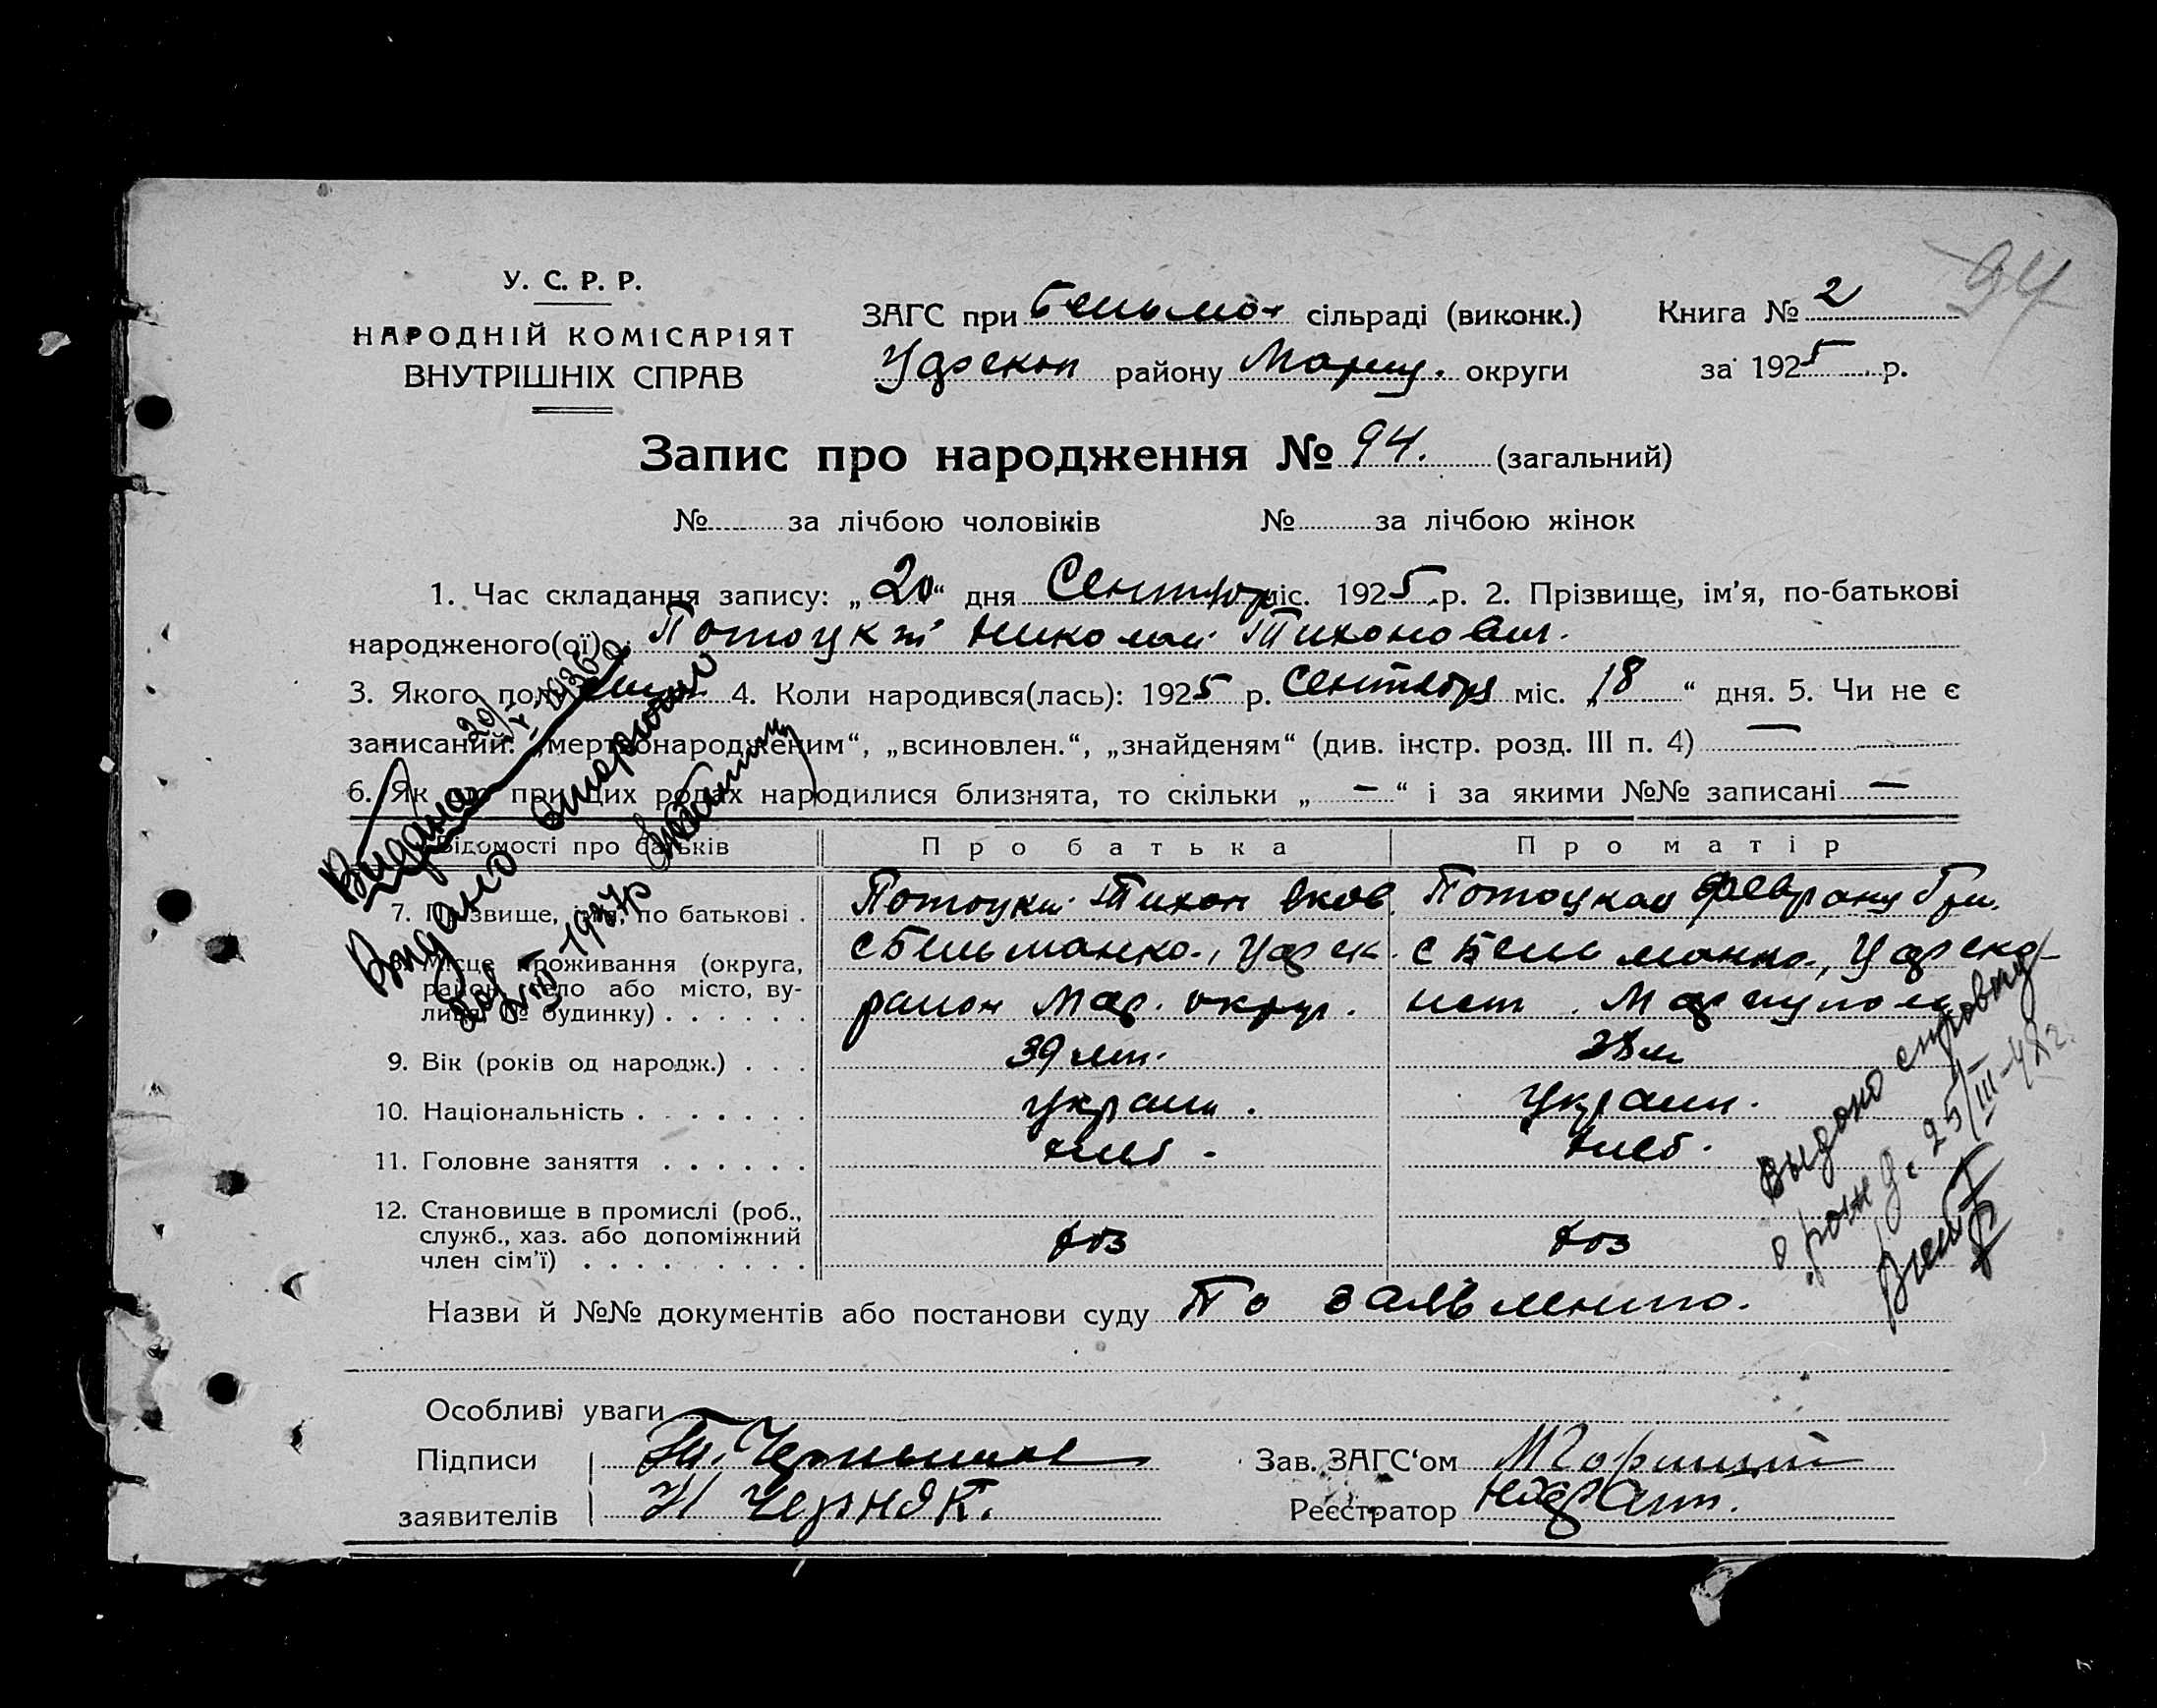 94
У. С. Р. Р.
НАРОДНІЙ КОМІСАРІЯТ
ВНУТРІШНІХ СПРАВ
ЗАГС при сільраді (виконк.)
Книга № 2
району Мариу. округи
за 1925 р.
Запис про народження № 94. (загальний)
№ за лічбою чоловіків № за лічбою жінок
1. Час складання запису: „20“ дня Сентябр міс. 1925 р. 2. Прізвище, ім’я, по-батькові
народженого(ої) Потоцкий Николай Тихонович.
3. Якого полу 4. Коли народився(лась): 1925 р. Сентября міс. „18“ дня. 5. Чи не є
записаний: „мертвонародженим“, „всиновлен.“, „знайденям“ (див. інстр. розд. III п. 4) —
6. Як що при цих родах народилися близнята, то скільки „ — “ і за якими №№ записані —
Видана 20/V 1936 р
Видано вторично
1937р
Відомості про батьків
Про батька
Про матір
7. Прізвище, ім’я, по батькові .
Потоцкий Тихон Яков.
Потоцкая Гри.
8. Місце проживання (округа,
район, село або місто, ву-
лиця, № будинку) . . . . . .
с Бельманка.,
район Мар. округ.
с Бельманка.,
9. Вік (років од народж.) . . .
39 лет.
38 л
10. Національність . . . . . . .
украин.
Украин.
11. Головне заняття . . . . . .
хлеб.
хлеб.
12. Становище в промислі (роб.,
служб., хаз. або допоміжний
член сім’ї) . . . . . . . . .
хоз
хоз
Выдано справку
о рожд. 25/III-48г.
Назви й №№ документів або постанови суду По заявлению.
Особливі уваги
Підписи
заявителів
Н Черняк.
Зав. ЗАГС‘ом
Реєстратор